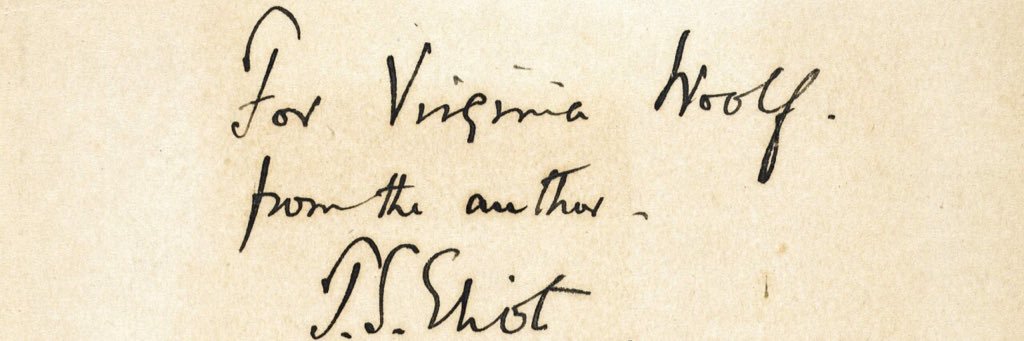 For Virginia Woolf.
from the author -
T.S. Eliot